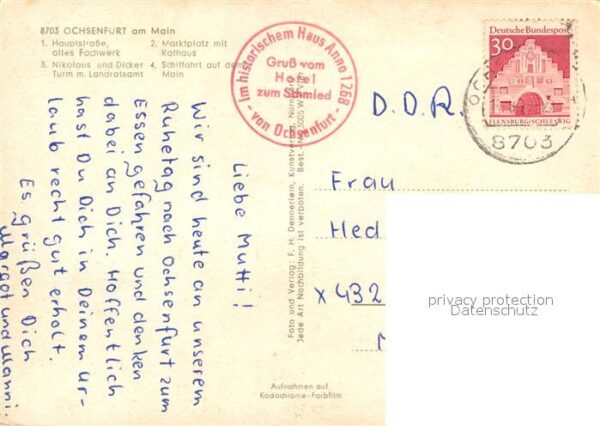 8703 OCHSENFURT am Main
1. Hauptstraße, altes Fachwerk
2. Marktplatz mit Rathaus
3. Nikolaus und Dicker Turm m. Landratsamt
4. Schiffahrt auf dem Main
Im historischem Haus Anno 1268
Gruß vom
Hotel
zum Schmied
- von Ochsenfurt -
Deutsche Bundespost
30
FLENSBURG/SCHLESWIG
8703
Liebe Mutti!
Wir sind heute an unserem
Ruhetag nach Ochsenfurt zum
Essen gefahren und denken
dabei an Dich. Hoffentlich
hast Du Dich in Deinem Ur-
laub recht gut erholt.
Es grüßen Dich
Margot und Manni.
Foto und Verlag: F. H. Dennerlein, Kunstverlag,
Jede Art Nachbildung ist verboten.
Aufnahmen auf
Kodachrome-Farbfilm
D.D.R.
Frau
Hed
X 432
privacy protection
Datenschutz